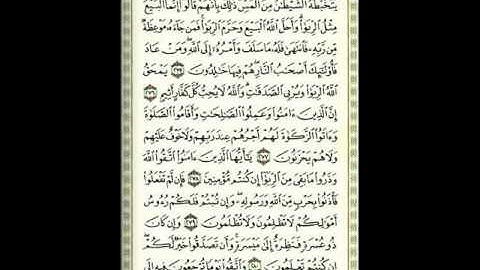 يَتَخَبَّطُهُ ٱلشَّيْطَٰنُ مِنَ ٱلْمَسِّ ذَٰلِكَ بِأَنَّهُمْ قَالُوٓا۟ إِنَّمَا ٱلْبَيْعُ
مِثْلُ ٱلرِّبَوٰا۟ وَأَحَلَّ ٱللَّهُ ٱلْبَيْعَ وَحَرَّمَ ٱلرِّبَوٰا۟ فَمَن جَآءَهُۥ مَوْعِظَةٌ
مِّن رَّبِّهِۦ فَٱنتَهَىٰ فَلَهُۥ مَا سَلَفَ وَأَمْرُهُۥٓ إِلَى ٱللَّهِ وَمَنْ عَادَ
فَأُو۟لَٰٓئِكَ أَصْحَٰبُ ٱلنَّارِ هُمْ فِيهَا خَٰلِدُونَ ٢٧٥ يَمْحَقُ
ٱللَّهُ ٱلرِّبَوٰا۟ وَيُرْبِى ٱلصَّدَقَٰتِ وَٱللَّهُ لَا يُحِبُّ كُلَّ كَفَّارٍ أَثِيمٍ ٢٧٦
إِنَّ ٱلَّذِينَ ءَامَنُوا۟ وَعَمِلُوا۟ ٱلصَّٰلِحَٰتِ وَأَقَامُوا۟ ٱلصَّلَوٰةَ
وَءَاتَوُا۟ ٱلزَّكَوٰةَ لَهُمْ أَجْرُهُمْ عِندَ رَبِّهِمْ وَلَا خَوْفٌ عَلَيْهِمْ
وَلَا هُمْ يَحْزَنُونَ ٢٧٧ يَٰٓأَيُّهَا ٱلَّذِينَ ءَامَنُوا۟ ٱتَّقُوا۟ ٱللَّهَ
وَذَرُوا۟ مَا بَقِىَ مِنَ ٱلرِّبَوٰٓا۟ إِن كُنتُم مُّؤْمِنِينَ ٢٧٨ فَإِن لَّمْ تَفْعَلُوا۟
فَأْذَنُوا۟ بِحَرْبٍ مِّنَ ٱللَّهِ وَرَسُولِهِۦ وَإِن تُبْتُمْ فَلَكُمْ رُءُوسُ
أَمْوَٰلِكُمْ لَا تَظْلِمُونَ وَلَا تُظْلَمُونَ ٢٧٩ وَإِن كَانَ
ذُو عُسْرَةٍ فَنَظِرَةٌ إِلَىٰ مَيْسَرَةٍ وَأَن تَصَدَّقُوا۟ خَيْرٌ لَّكُمْ
إِن كُنتُمْ تَعْلَمُونَ ٢٨٠ وَٱتَّقُوا۟ يَوْمًا تُرْجَعُونَ فِيهِ إِلَى